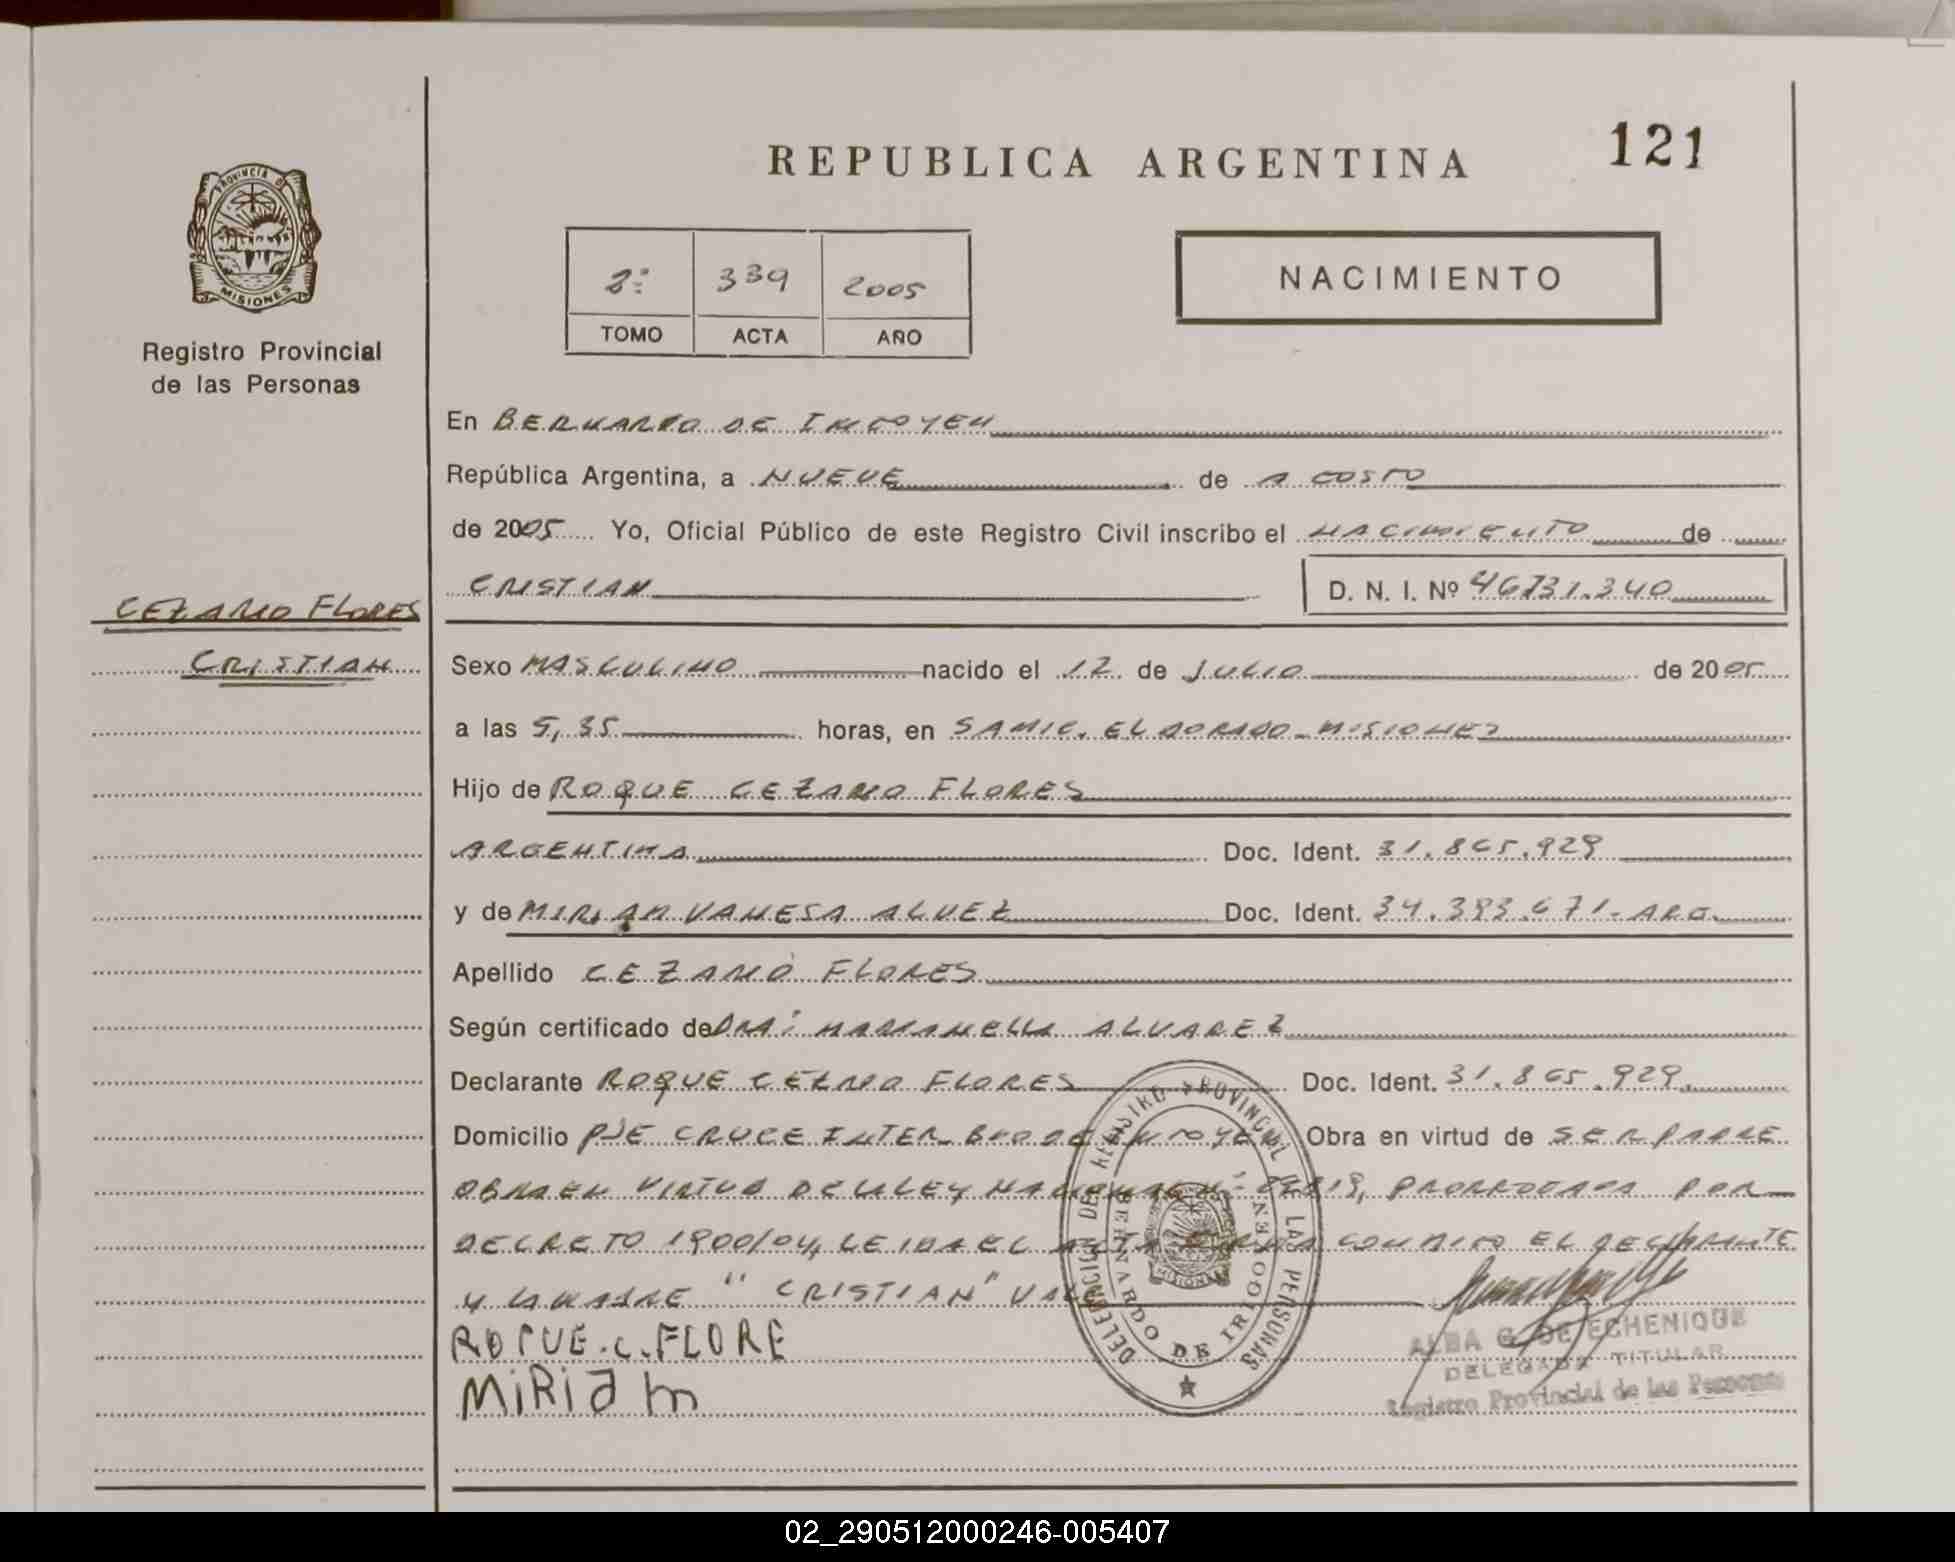 REPUBLICA ARGENTINA
121
PROVINCIA DE
MISIONES
Registro Provincial
de las Personas
2º 339 2005
TOMO ACTA AÑO
NACIMIENTO
En BERNARDO DE IRIGOYEN
República Argentina, a NUEVE de AGOSTO
de 2005 Yo, Oficial Público de este Registro Civil inscribo el NACIMIENTO de
CRISTIAN D. N. I. Nº 46.731.340
CEZARIO FLORES
CRISTIAN
Sexo MASCULINO nacido el 12 de JULIO de 2005
a las 5,35 horas, en SAMIC. ELDORADO-MISIONES
Hijo de ROQUE CEZARIO FLORES
ARGENTINA Doc. Ident. 31.865.929
y de MIRIAM VANESA ALVEZ Doc. Ident. 34.383.671-ARG.
Apellido CEZARIO FLORES
Según certificado de DRA: MARIANELLA ALVAREZ
Declarante ROQUE Flores Doc. Ident. 31.865.929.
Domicilio PJE CRUCE INTER. BDO DE IRIGOYEN Obra en virtud de SER PADRE
OBRA EN VIRTUD DE LA LEY NACIONAL Nº PRORROGADA POR
DECRETO 1900/04, LEIDA EL ACTA FIRMA CONMIGO EL DECLARANTE
Y LA MADRE "CRISTIAN" VALE
ROPUE.C.FLORE
MiRiam
DELEGACION DEL REGISTRO PROVINCIAL DE LAS PERSONAS
BERNARDO DE IRIGOYEN
MISIONES
ALBA G. DE ECHENIQUE
DELEGADA TITULAR
Registro Provincial de las Personas
02_290512000246-005407